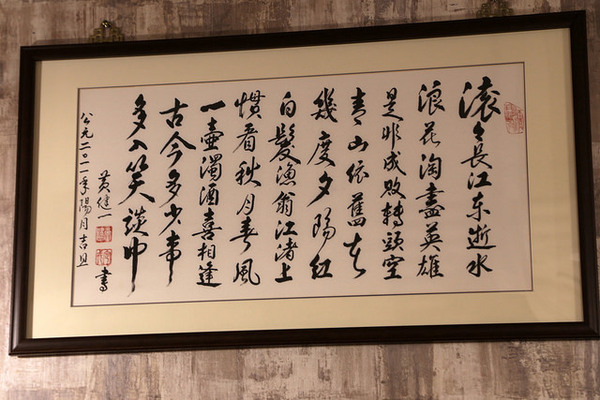 滚々長江东逝水
浪花淘盡英雄
是非成敗轉頭空
青山依舊在
幾度夕陽紅
白髮漁翁江渚上
慣看秋月春風
一壺濁酒喜相逢
古今多少事
多入笑談中
黄健一 書
公元二〇一一季陽月吉旦